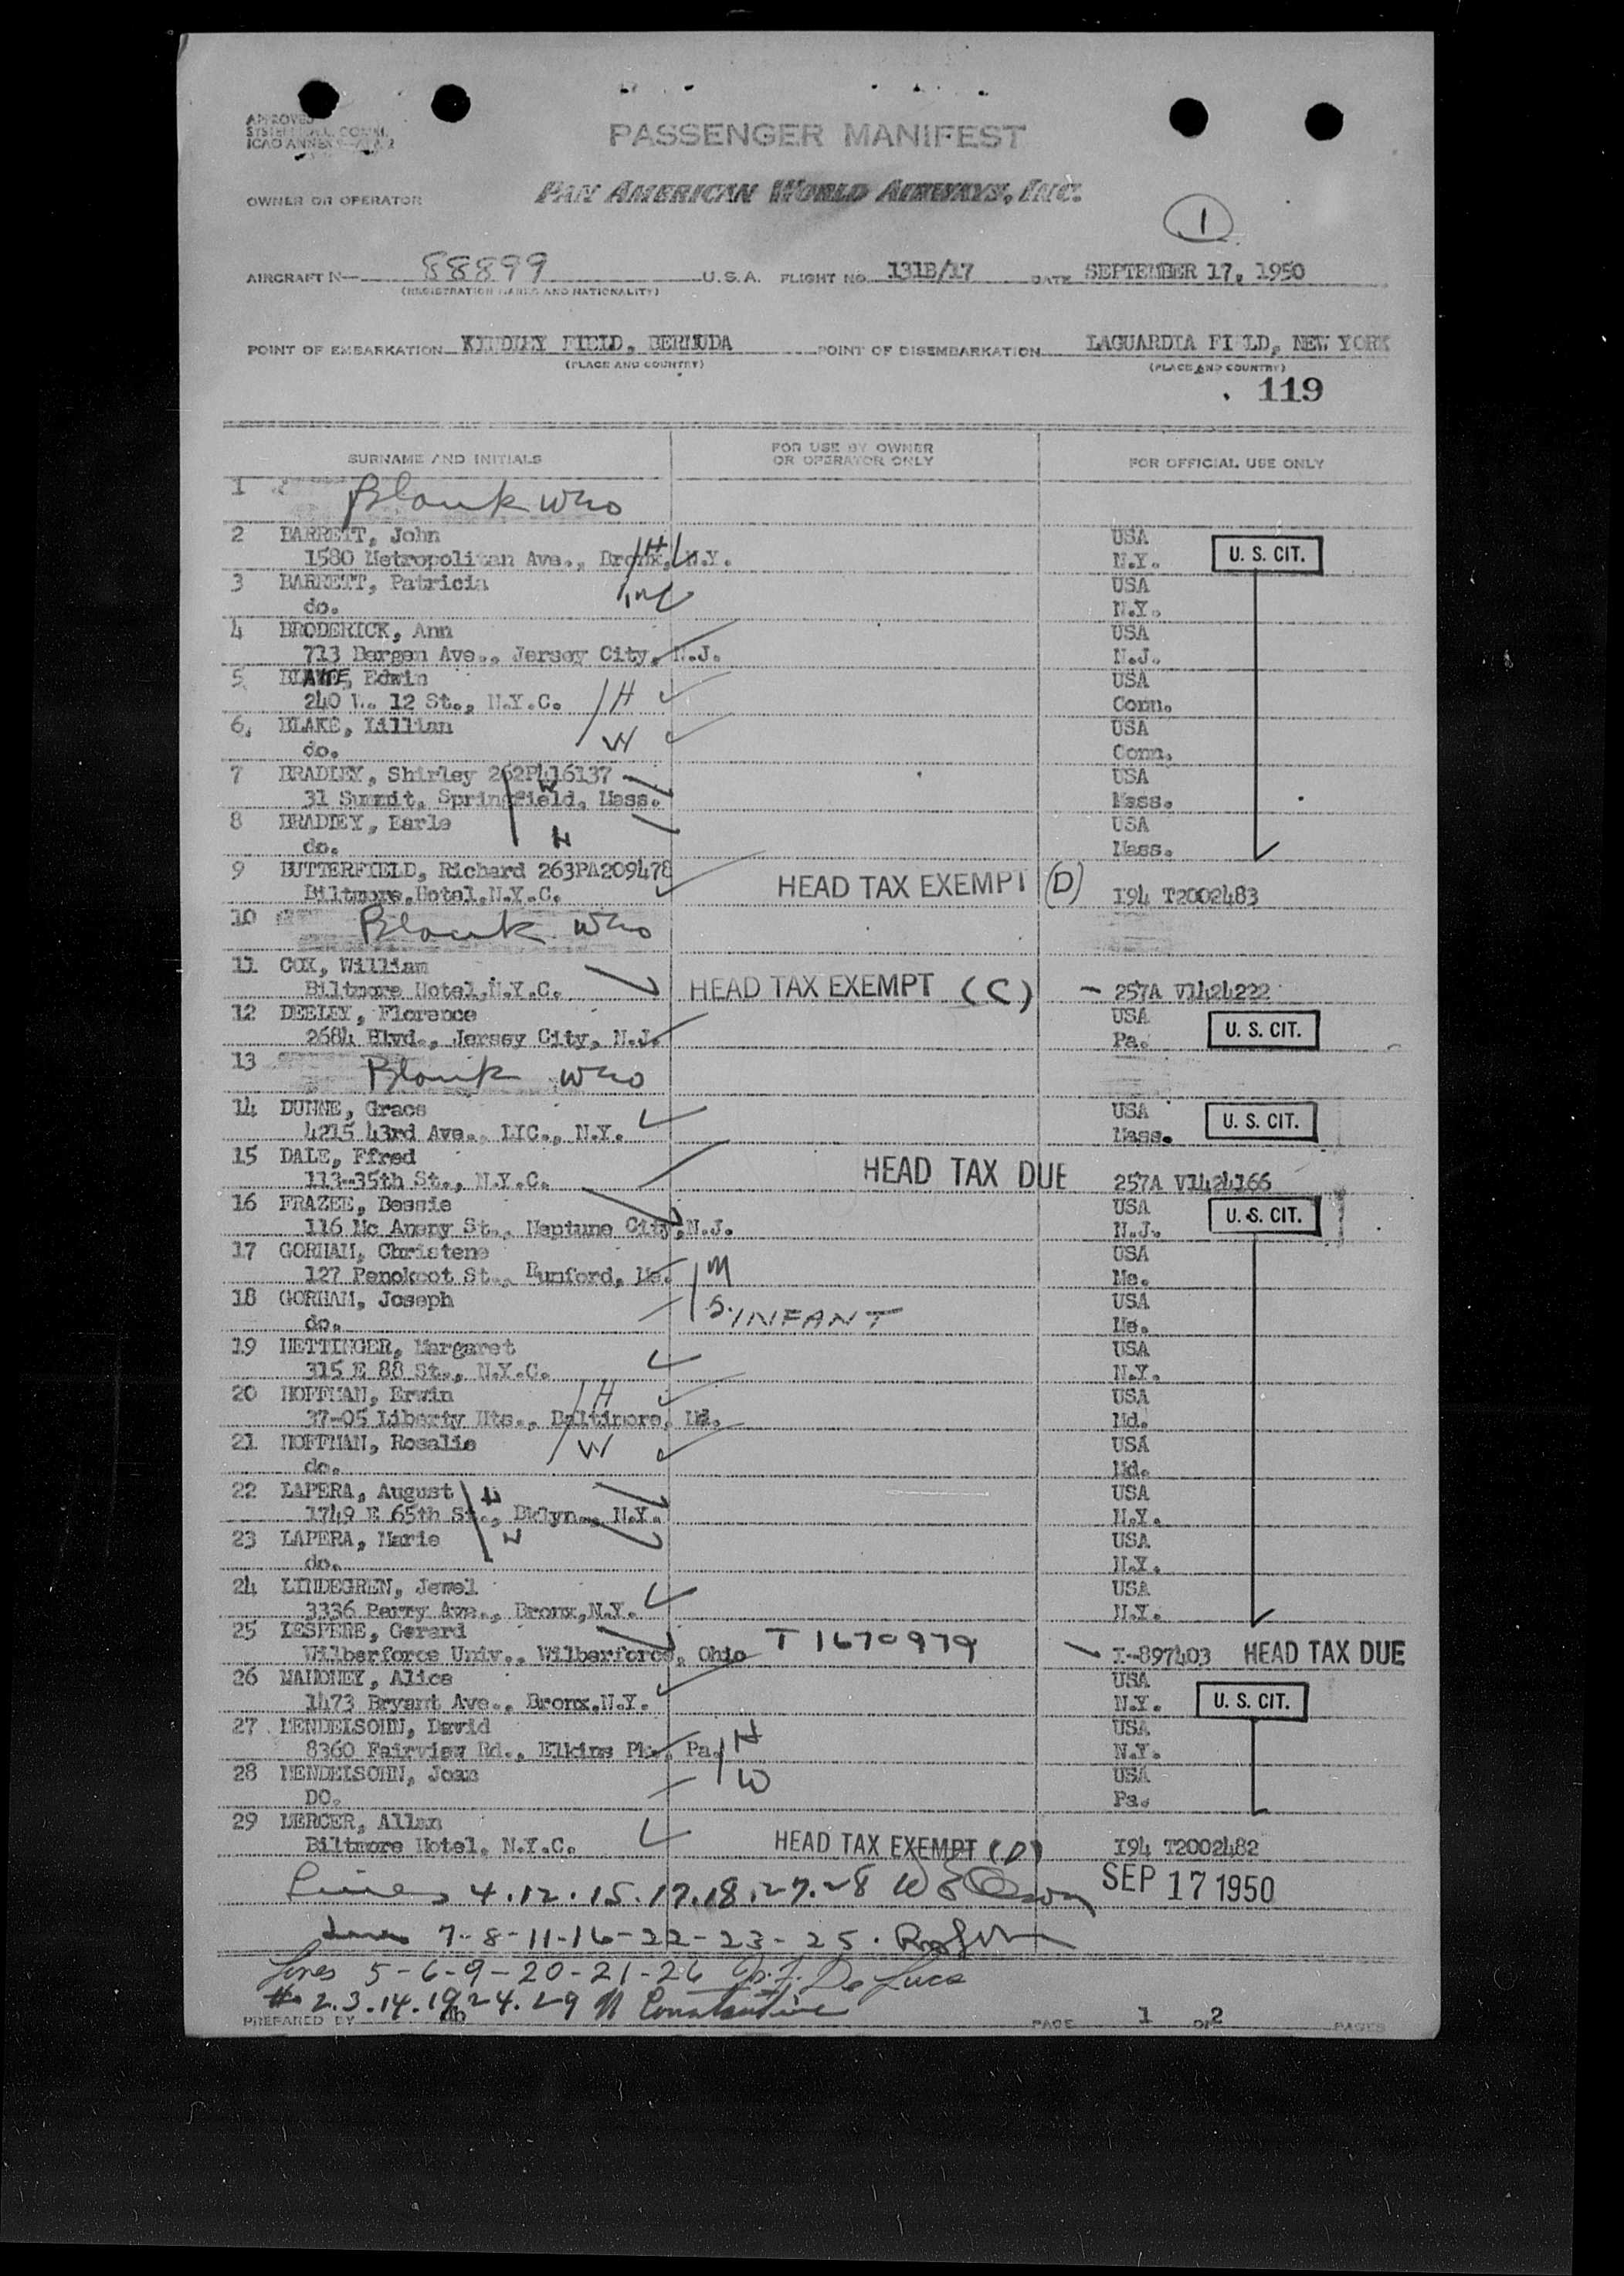 APPROVED
ICAO ANNEX 9
PASSENGER MANIFEST
OWNER OR OPERATOR PAN AMERICAN WORLD AIRWAYS, INC.
1
AIRCRAFT N— 88899 U.S.A. FLIGHT NO. 131B/17 DATE SEPTEMBER 17, 1950
(REGISTRATION MARKS AND NATIONALITY)
POINT OF EMBARKATION KINDLEY FIELD, BERMUDA POINT OF DISEMBARKATION LAGUARDIA FI LD, NEW YORK
(PLACE AND COUNTRY) (PLACE AND COUNTRY)
119
SURNAME AND INITIALS FOR USE BY OWNER OR OPERATOR ONLY FOR OFFICIAL USE ONLY
1 Blank
2 BARRETT, John USA
1580 Metropolitan Ave., Bronx, N.Y. H N.Y. U. S. CIT.
3 BARRETT, Patricia USA
do. N.Y.
4 BRODERICK, Ann USA
713 Bergen Ave., Jersey City, N.J. N.J.
5 Edwin USA
240 W. 12 St., N.Y.C. H Conn.
6. BLAKE, Lillian USA
do. W Conn.
7 BRADLEY, Shirley 262P416137 USA
31 Summit, Springfield, Mass. W Mass.
8 BRADLEY, Earle USA
do. H Mass.
9 BUTTERFIELD, Richard 263PA209478
Biltmore Hotel, N.Y.C. HEAD TAX EXEMPT (D) I94 T2002483
10 Blank
11 COX, William
Biltmore Hotel, N.Y.C. HEAD TAX EXEMPT (C) 257A V1424222
12 DEELEY, Florence USA
2684 Blvd., Jersey City, N.J. Pa. U. S. CIT.
13 Blank
14 DUNNE, Grace USA
4215 43rd Ave., LIC., N.Y. Mass. U. S. CIT.
15 DALE, Ffred
113-35th St., N.Y.C. HEAD TAX DUE 257A V1424166
16 FRAZEE, Bessie USA
116 Mc Aneny St., Neptune City, N.J. N.J. U. S. CIT.
17 GORHAM, Christene USA
127 Penokcot St., Rumford, Me. M Me.
18 GORHAM, Joseph USA
do. S. INFANT Me.
19 HETTINGER, Margaret USA
315 E 88 St., N.Y.C. N.Y.
20 HOFFMAN, Erwin USA
37-05 Liberty Hts., Baltimore, Md. H Md.
21 HOFFMAN, Rosalie USA
do. W Md.
22 LAPERA, August USA
1749 E 65th St., Bklyn., N.Y. H N.Y.
23 LAPERA, Marie USA
do. W N.Y.
24 LINDEGREN, Jewel USA
3336 Perry Ave., Bronx, N.Y. N.Y.
25 LESPERE, Gerard
Wilberforce Univ., Wilberforce, Ohio T1670979 I-897403 HEAD TAX DUE
26 MAHONEY, Alice USA
1473 Bryant Ave., Bronx, N.Y. N.Y. U. S. CIT.
27 MENDELSOHN, David USA
8360 Fairview Rd., Elkins Pk., Pa. H N.Y.
28 MENDELSOHN, Joan USA
DO. W Pa.
29 MERCER, Allan
Biltmore Hotel, N.Y.C. HEAD TAX EXEMPT (D) I94 T2002482
Lines 4.12.15.17.18.27.28 SEP 17 1950
Lines 7-8-11-16-22-23-25.
Lines 5-6-9-20-21-26 De Luca
2.3.14.19.24.29 Constantine
PREPARED BY PAGE 1 OF 2 PAGES